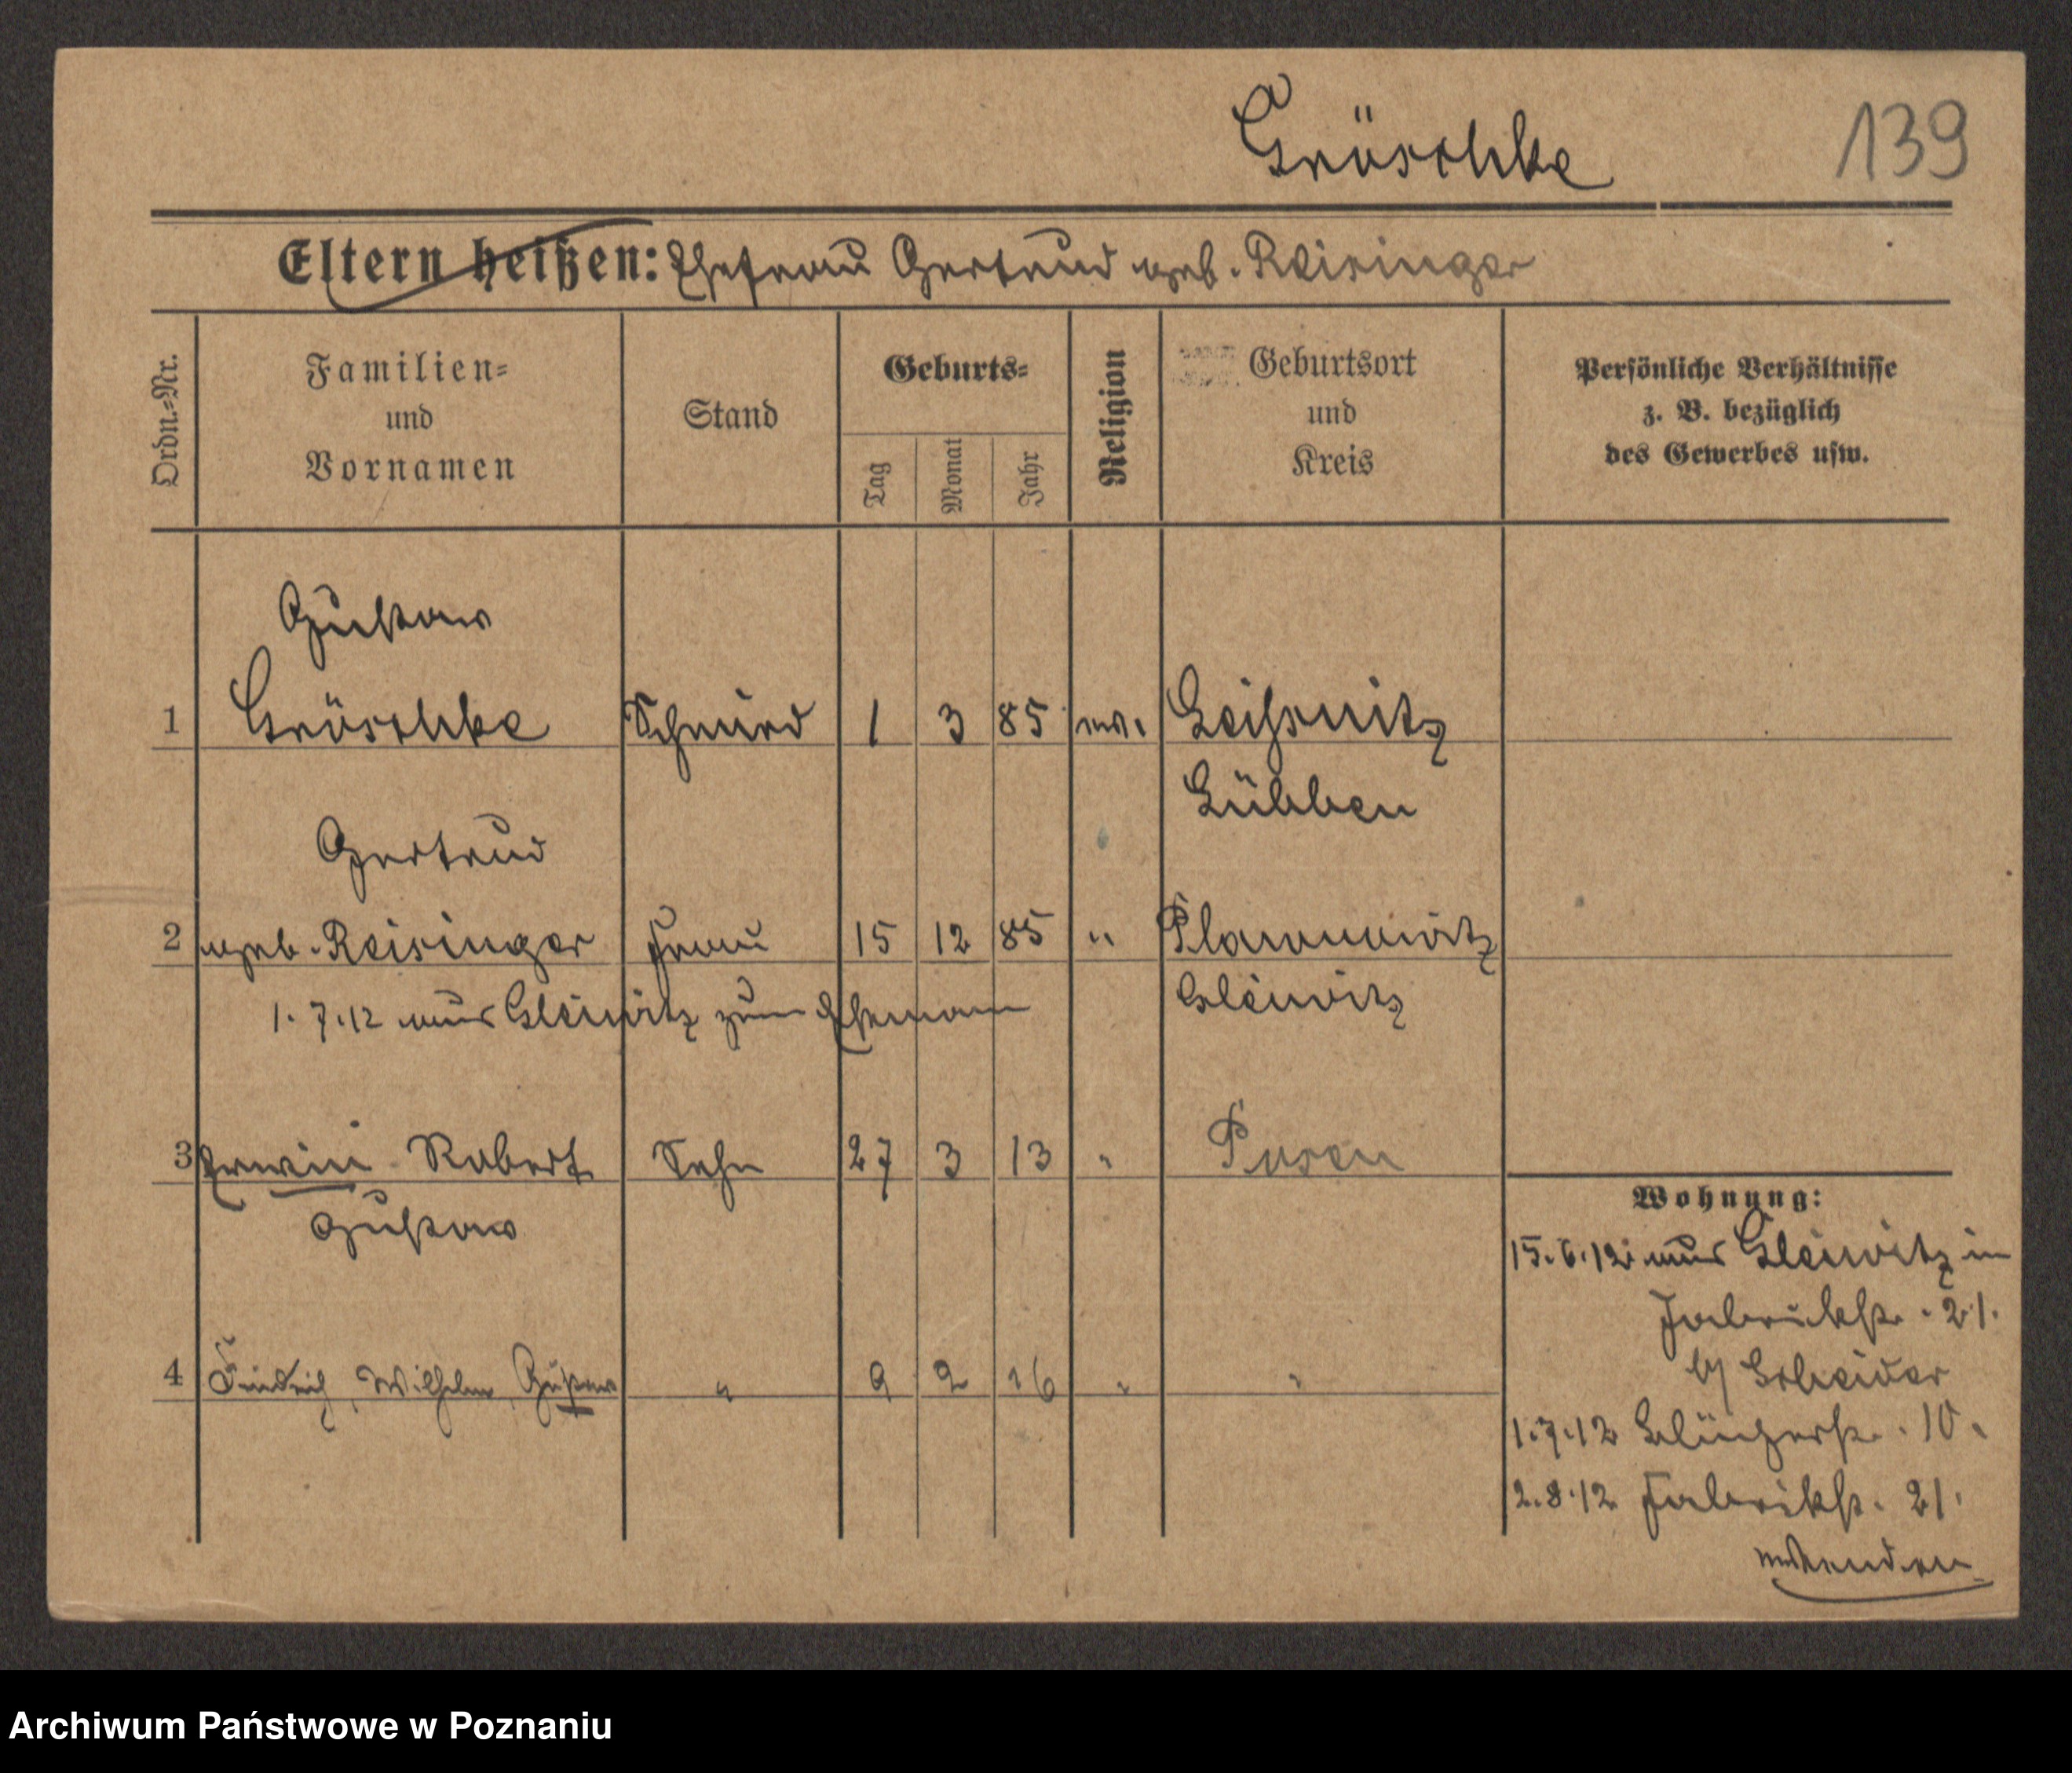 Gröschke 139
Eltern heißen: Ehefrau Gertrud geb. Reisinger
Ordn.=Nr.
Familien=
und
Vornamen
Stand
Geburts=
Tag
Monat
Jahr
Religion
Geburtsort
und
Kreis
Persönliche Verhältnisse
z. B. bezüglich
des Gewerbes usw.
Gustav
1 Gröschke Schmied 1 3 85 ev. Leißnitz
Lübben
Gertrud
2 geb. Reisinger Frau 15 12 85 "
1.7.12 aus Gleiwitz zum Ehemann Gleiwitz
3 Erwin Robert Sohn 27 3 13 " Posen
Gustav
4 Friedrich, Wilhelm, Gustav " 9 2 16 " "
Wohnung:
15.6.12 aus Gleiwitz in
Fabrikstr. 21.
b/
1.7.12 10.
2.8.12 Fabrikstr. 21.
Archiwum Państwowe w Poznaniu